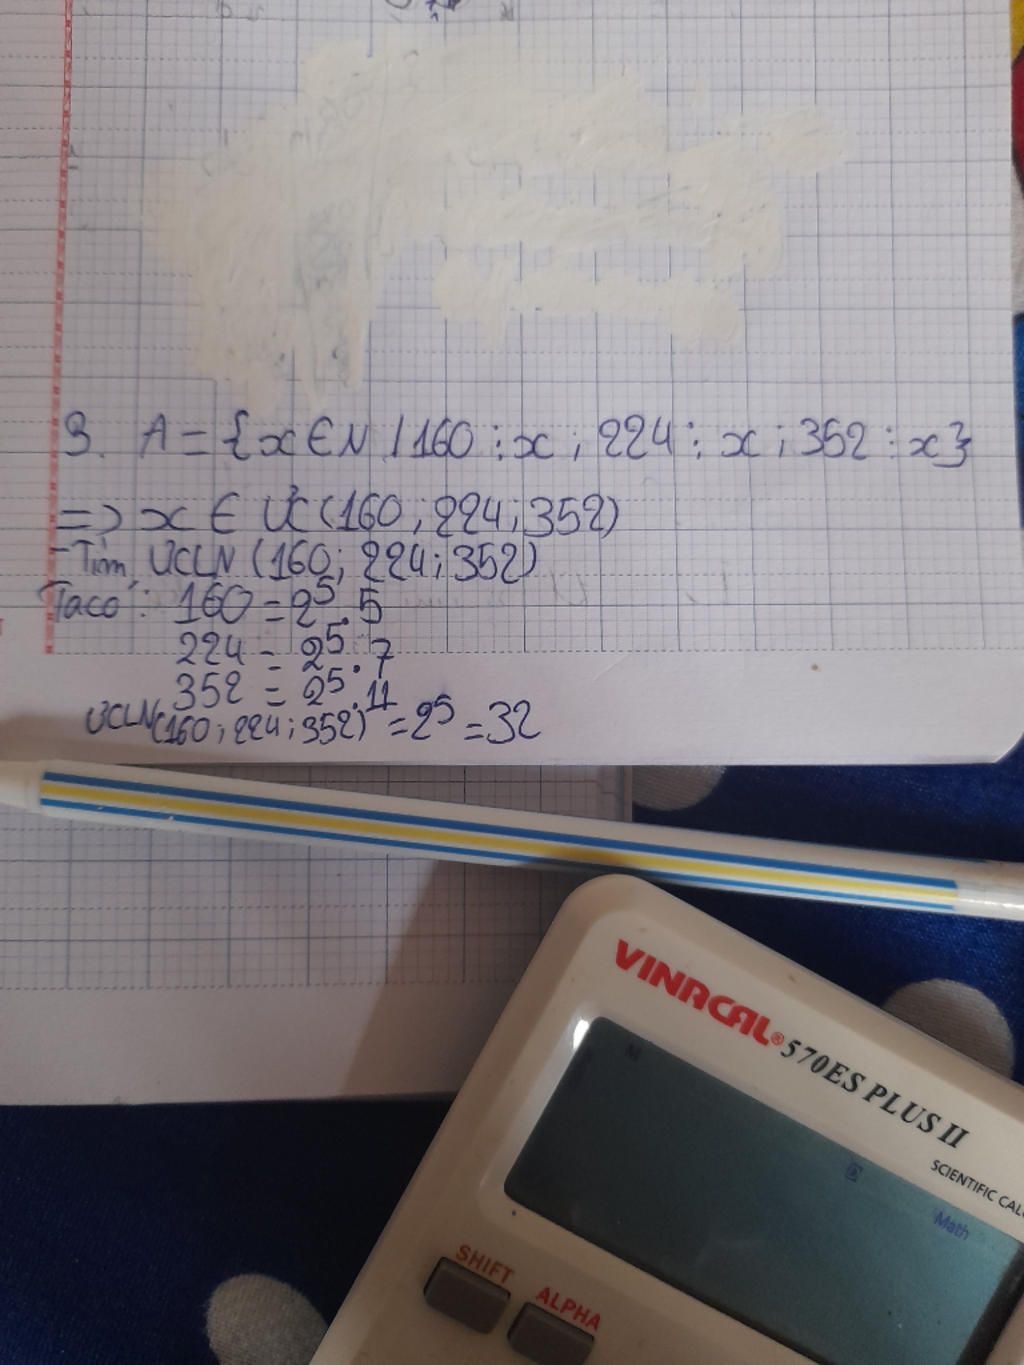 3. A = {x ∈ N / 160 ⋮ x ; 224 ⋮ x ; 352 ⋮ x}
=> x ∈ ƯC(160 ; 224 ; 352)
- Tìm ƯCLN (160; 224; 352)
Ta có: 160 = 2⁵.5
224 = 2⁵.7
352 = 2⁵.11
ƯCLN(160 ; 224 ; 352) = 2⁵ = 32
VINACAL® 570ES PLUS II
SCIENTIFIC
M
D
Math
SHIFT
ALPHA